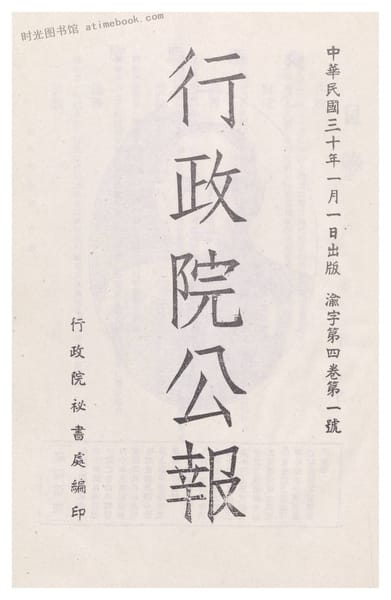 时光图书馆 atimebook.com
中華民國三十年一月一日出版 渝字第四卷第一號
行政院公報
行政院祕書處編印